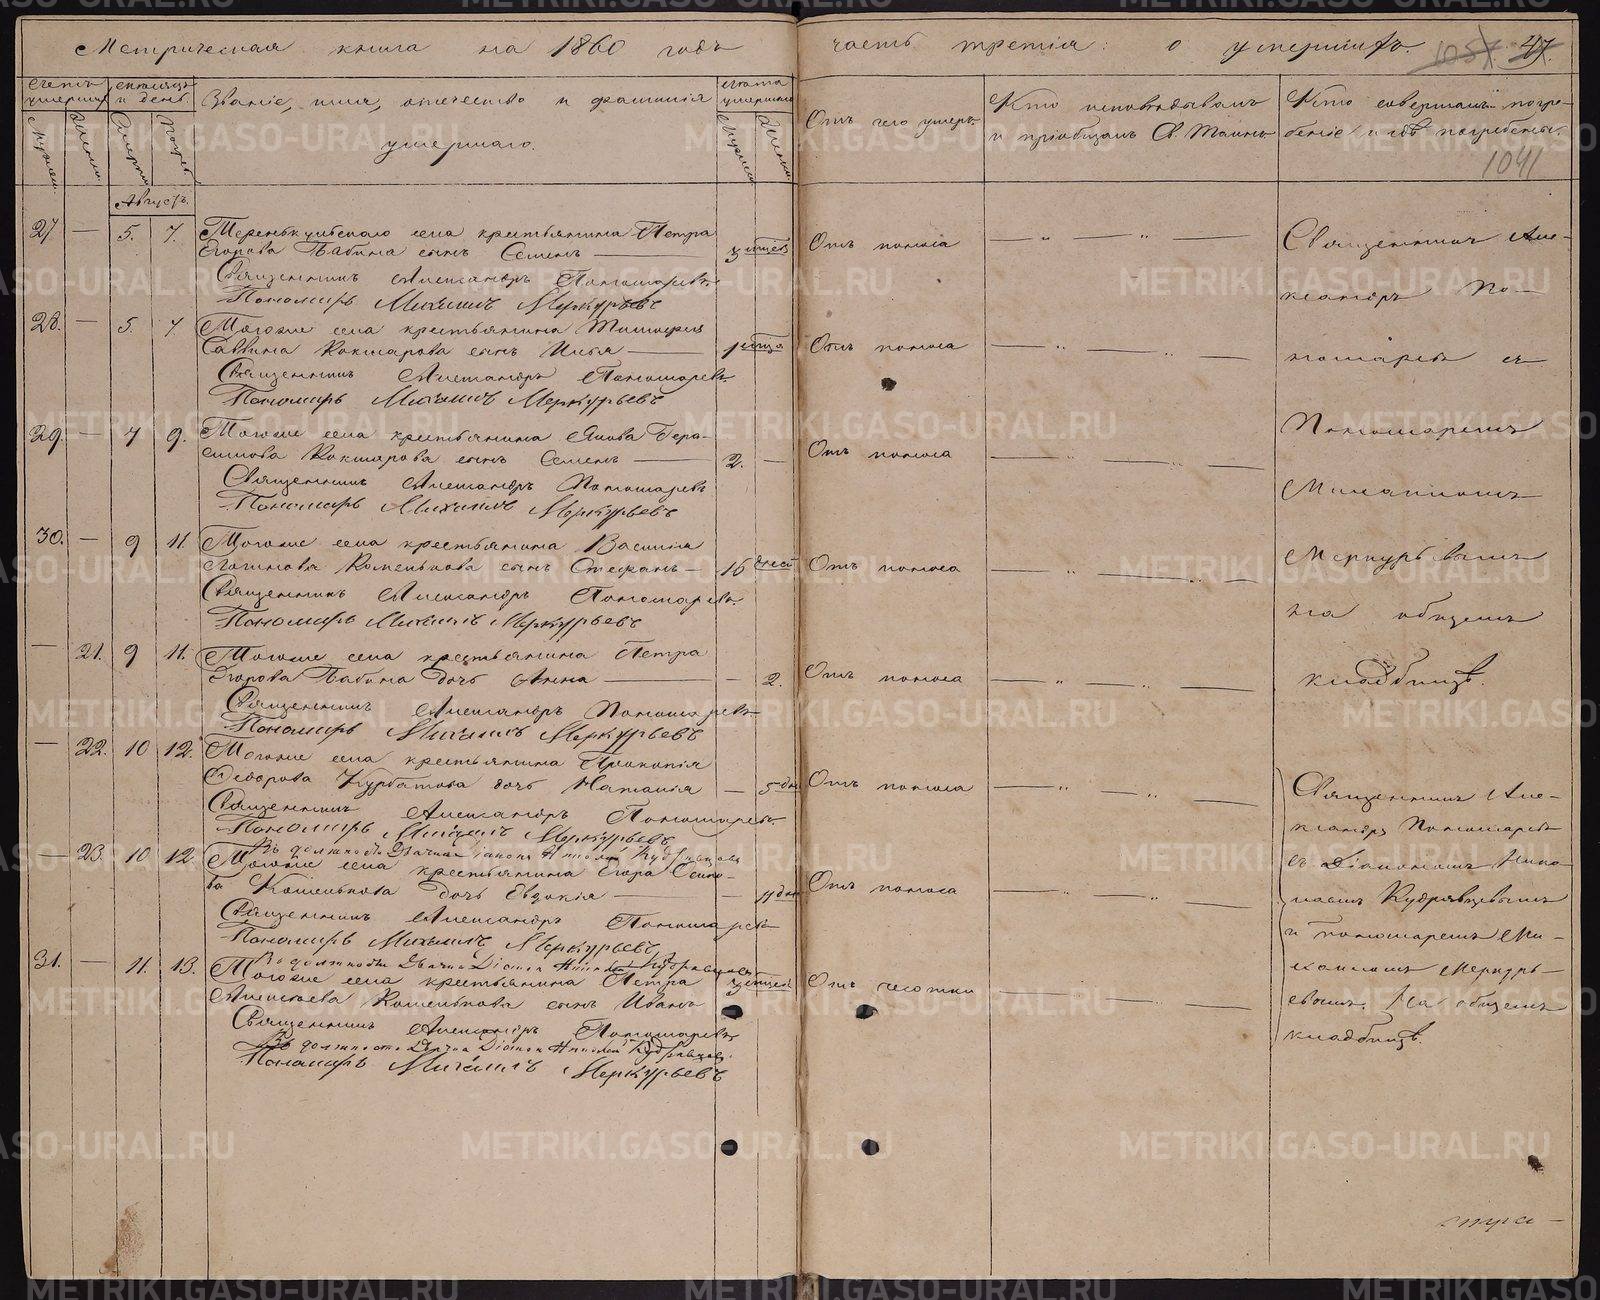 Метрическая книга на 1860 годъ
часть третія: о умершихъ.
1057. 47.
1041
Счетъ умершихъ
Мѣсяцъ и день.
Званіе, имя, отчество и фамилія умершаго.
Лѣта умершаго
Отъ чего умеръ.
Кто исповѣдывалъ и пріобщалъ Св. Таинъ.
Кто совершалъ погребеніе и гдѣ погребены.
Августъ.
27 — 5. 7. села крестьянина Петра
Егорова Бабина сынъ Семенъ —
Отъ поноса
Священникъ Александръ Пономаревъ.
Пономарь Михаилъ Меркурьевъ
28. — 5. 7. Тогоже села крестьянина Тимофея
Саввина Кокшарова сынъ Илья —
Отъ поноса
Священникъ Александръ Пономаревъ
Пономарь Михаилъ Меркурьевъ
29. — 7 9. Тогоже села крестьянина Якова Гера-
симова Кокшарова сынъ Семенъ — 2. —
Отъ поноса
Священникъ Александръ Пономаревъ
Пономарь Михаилъ Меркурьевъ
30. — 9 11. Тогоже села крестьянина Василія
сынъ Стефанъ — 16 дней
Отъ поноса
Священникъ Александръ Пономаревъ.
Пономарь Михаилъ Меркурьевъ
— 21. 9 11. Тогоже села крестьянина Петра
Егорова Бабина дочь Анна — — 2.
Отъ поноса
Священникъ Александръ Пономаревъ
Пономарь Михаилъ Меркурьевъ
— 22. 10 12. Тогоже села крестьянина Прокопія
Ѳедорова Курбатова дочь Наталія — 5 дн
Отъ поноса
Священникъ Александръ Пономаревъ.
Пономарь Михаилъ Меркурьевъ.
Въ должности Дьячка Діаконъ Николай Кудрявцовъ
— 23. 10 12. Тогоже села крестьянина Егора
Кошелькова дочь Евдокія — — 11 дн
Отъ поноса
Священникъ Александръ Пономаревъ
Пономарь Михаилъ Меркурьевъ
Въ должности Дьячка Діаконъ Николай Кудрявцовъ
31. — 11. 13. Тогоже села крестьянина Петра
Алексѣева Кошелькова сынъ Иванъ
Отъ чесотки
Священникъ Александръ Пономаревъ
Въ должности Дьячка Діаконъ Николай Кудрявцовъ.
Пономарь Михаилъ Меркурьевъ
Священникъ Але-
ксандръ По-
номаревъ съ
Пономаремъ
Михаиломъ
Меркурьевымъ
на общемъ
кладбищѣ.
Священникъ Але-
ксандръ Пономаревъ
съ Діакономъ Нико-
лаемъ Кудрявцевымъ
и пономаремъ Ми-
хаиломъ Меркурь-
евымъ. На общемъ
кладбищѣ.
METRIKI.GASO-URAL.RU